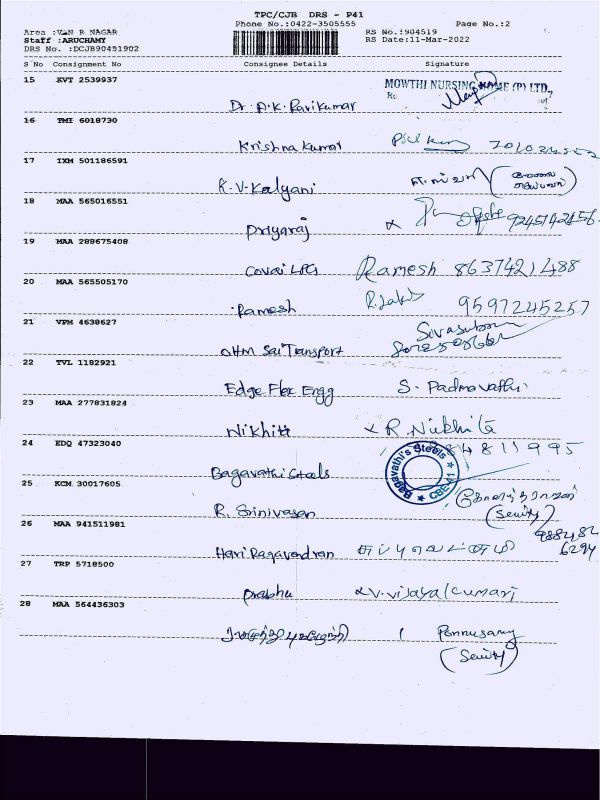 TPC/CJB DRS - P41
Phone No.:0422-3505555 Page No.:2
Area :VAN R NAGAR RS No.:904519
Staff :ARUCHAMY RS Date:11-Mar-2022
DRS No. :DCJB90451902
S No Consignment No Consignee Details Signature
15 KVT 2539937 MOWTHI NURSING HOME (P) LTD.,
Dr. A.K. Ravikumar
16 TMI 6018730
Krishna Kumar
17 IXM 501186591
K.V. Kalyani
18 MAA 565016551
Priyaraj 9245142456
19 MAA 288675408
Covai LPG Ramesh 8637421488
20 MAA 565505170
Ramesh 9597245257
21 VPM 4638627
OHM Sai Transport
22 TVL 1182921
Edge Flex Engg S. Padmavathi
23 MAA 277831824
Nikhitt R. Nikhita
24 EDQ 47323040 84811995
Bagavathi Steels Bagavathi's Steels ★ CBE-41 ★
25 KCM 30017605
R. Srinivasan (Security)
26 MAA 941511981 988482
Hari Ragavendran 6294
27 TRP 5718500
Prabhu V. Vijayalkumari
28 MAA 564436303
Ponnusamy
(Security)